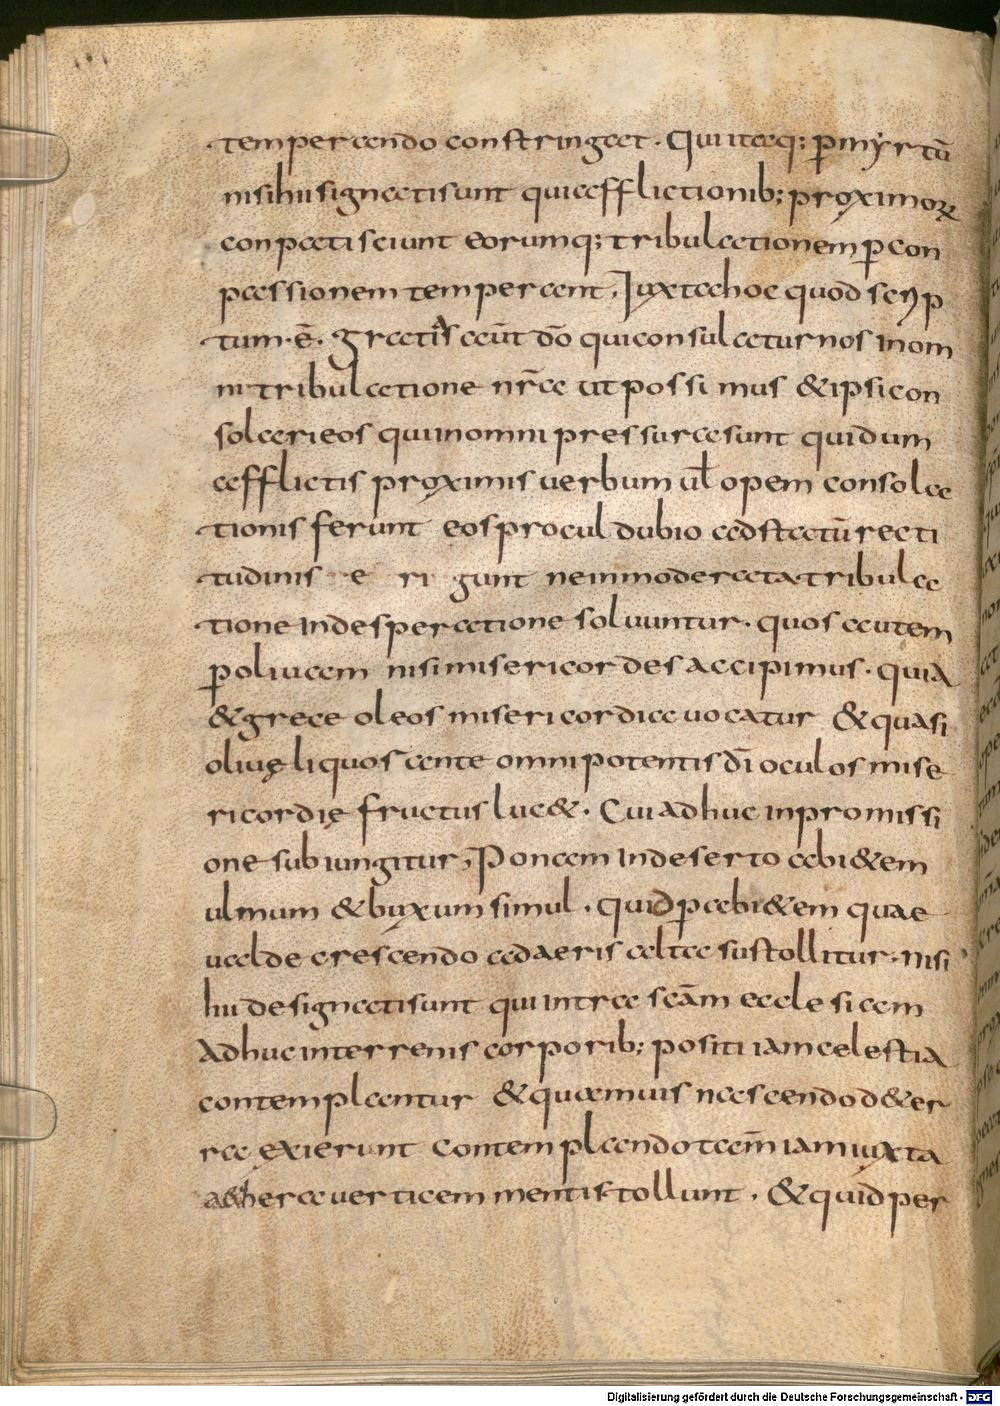 temperando constringat. Qui itaq; ꝑ myrtū
nisi hii signati sunt qui afflictionib; proximoꝝ
conpati sciunt eorumq; tribulationem ꝑ con
passionem temperant. Juxta hoc quod scrip
tum·ē· gratias agūt dō qui consulatur nos in om
ni tribulatione nr̄a ut possimus & ipsi con
solari eos qui in omni pressura sunt qui dum
afflictis proximis uerbum ul̄ opem consola
tionis ferunt eos procul dubio ad statū recti
tudinis e ri gunt ne inmoderata tribula
tione in desperatione soluuntur. quos autem
ꝑ oliuam nisi misericordes accipimus. quia
& grece oleos misericordia uocatur & quasi
oliuę liquos ante omnipotentis dī oculos mise
ricordię fructus luc&. Cui adhuc in promissi
one subiungitur, Ponam in deserto abi&em
ulmum & buxum simul. quid ꝑ abi&em quae
ualde crescendo ad aeris alta sustollitur. nisi
hii designati sunt qui intra scām ecclesiam
adhuc in terrenis corporib; positi iam celestia
contemplantur & quamuis nascendo d&er
ra exierunt contemplando tam̄ iam iuxta
a&hera uerticem mentis tollunt. & quid per
Digitalisierung gefördert durch die Deutsche Forschungsgemeinschaft - DFG